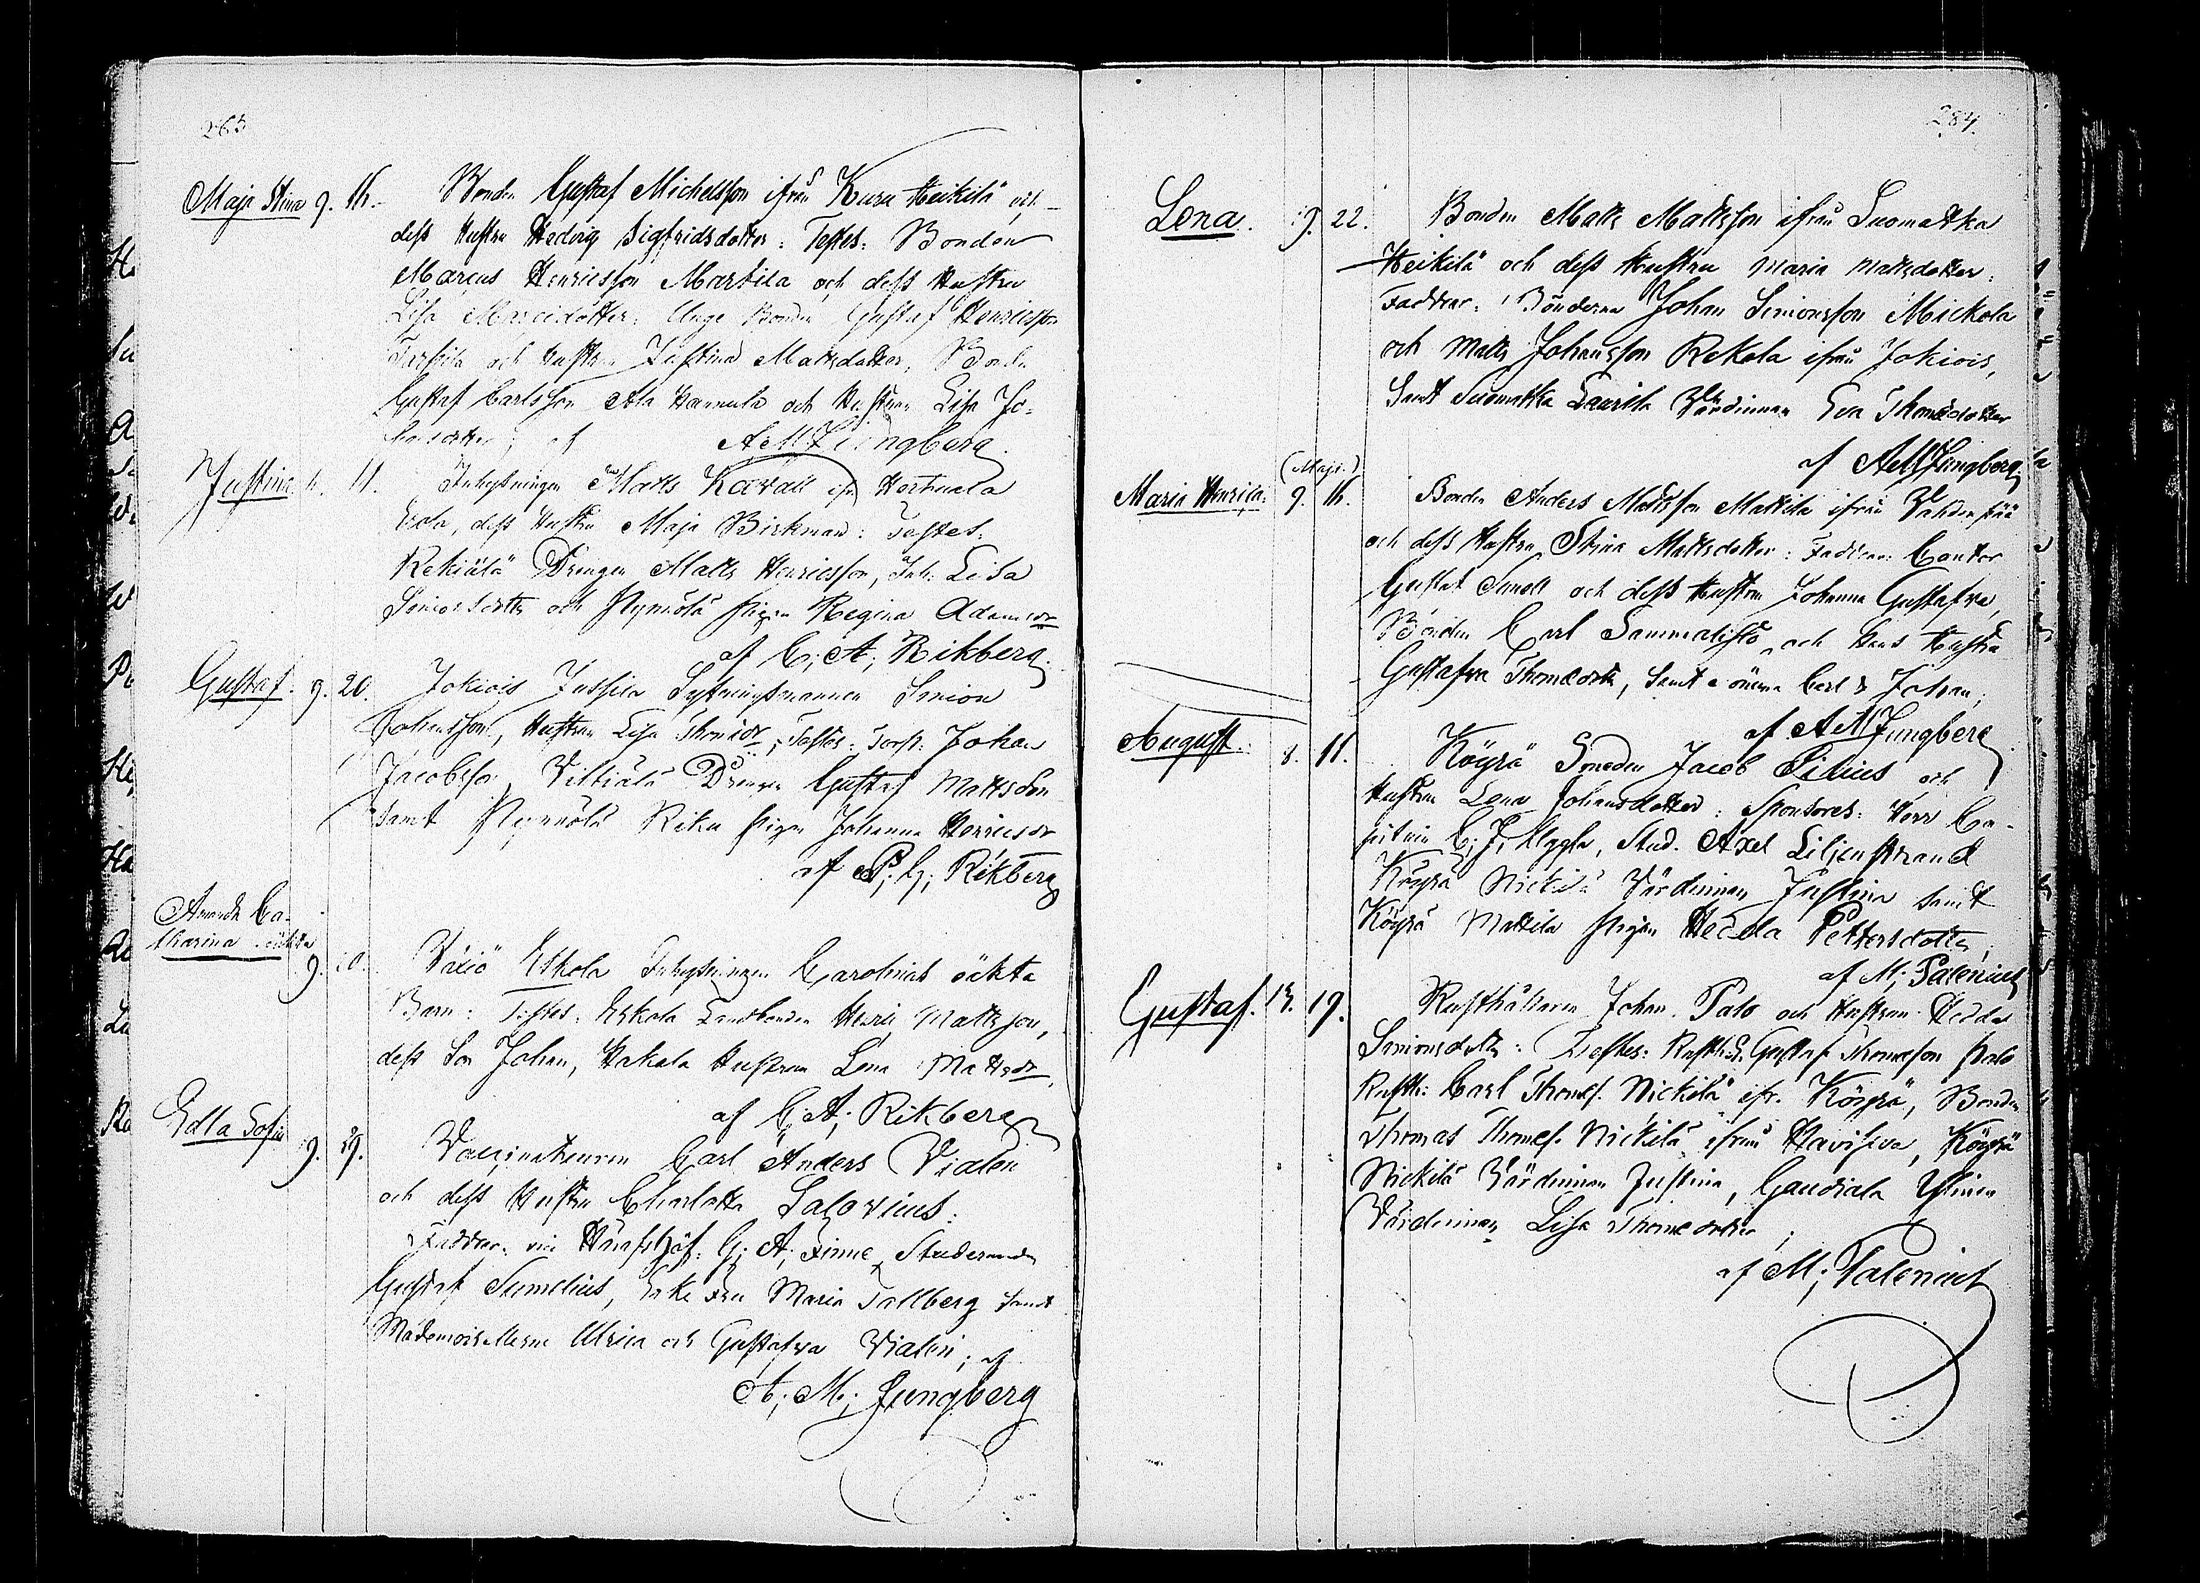 265
Maja Stina 9. 16. Bonden Gustaf Michelsson ifrån Kuru Heikilä och
dess Hustru Hedvig Sigfridsdotter: Testes: Bonden
Marcus Henricsson Martila och dess Hustru
Lisa Marcidotter. Unge Bonden Gustaf Henricsson
och Hustrun Justina Mattsdotter, Bonden
Gustaf Carlsson Ala Hannula och Hustrun Lisa Jo-
hansdotter; af A M Ljungberg.
Justina 11. Inhysningen Matts Kavall ifrån
dess Hustru Maja Birkman: Testes:
Rekiälä Drengen Matts Henricsson, Inh. Lisa
Simonsdotter och Nymölä Pigan Regina Adamsdr
af C; A; Rikberg.
Gustaf. 9. 20. Jokiois Jussila Sytningsmannen Simon
Johansson, Hustrun Lisa Thomædr; Testes: Torp. Johan
Jacobsson, Drengen Gustaf Mattsson
samt Riku Pigan Johanna Henricsdr
af P; G; Rikberg
Amanda Ca-
tharina oäkta
9. 20. Eskola Inhysningen Carolinas oäkta
Barn: Testes: Eskola Landbonden Henric Mattsson,
dess Son Johan, Hakala Hustrun Lena Mattsdr,
af C; A; Rikberg
Edla Sofia 9. 29. Vaccinateuren Carl Anders Vialen
och dess Hustru Charlotta Salovius:
Faddrar: vice Häradshöf: G; A; Finne, Studeranden
Gustaf Sumelius, Enke Fru Maria Tallberg samt
Mademoisellerne Ulrica och Gustafva Vialen; af
A; M; Ljungberg
284.
Lena. 9. 22. Bonden Matts Mattsson ifrån Suomatka
Heikilä och dess Hustru Maria Mattsdotter:
Faddrar: Bönderna Johan Simonsson Mickola
och Matts Johansson Rekola ifrån Jokiois,
Samt Suomatka Laurila Värdinnan Eva Thomædotter
af A M Ljungberg
(Maji.)
Maria Henrica. 9. 16. Bonden Anders Mattsson Mattila ifrån Vahdenpää
och dess Hustru Stina Mattsdotter: Faddrar: Cantor
Gustaf Sunell och dess Hustru Johanna Gustafva,
Bonden Carl Sammalisto och Hans Hustru
Gustafva Thomædotter, Samt Carl & Johan,
af A M Ljungberg
August. 8. 11. Köyrä Smeden Jacob Silius och
Hustrun Lena Johansdotter: Sponsores: Herr Ca-
pitain C; J; Uggla, Stud. Axel Liljenstrand
Köyrä Nickilä Värdinnan Justina samt
Köyrä Mattila Pigan Hedda Pettersdotter,
af M; Palenius
Gustaf. 13. 19. Rusthållaren Johan Palo och Hustrun Hedda
Simonsdotter: Testes: Rusth. Gustaf Thomasson Palo
Rusth: Carl Thomæs. Nickilä ifr. Köyrä, Bonden
Thomas Thomæs. Nickilä ifrån Haviseva, Köyrä
Nickilä Värdinnan Justina, Yliinen
Värdinnan Lisa Thomædotter,
af M; Palenius